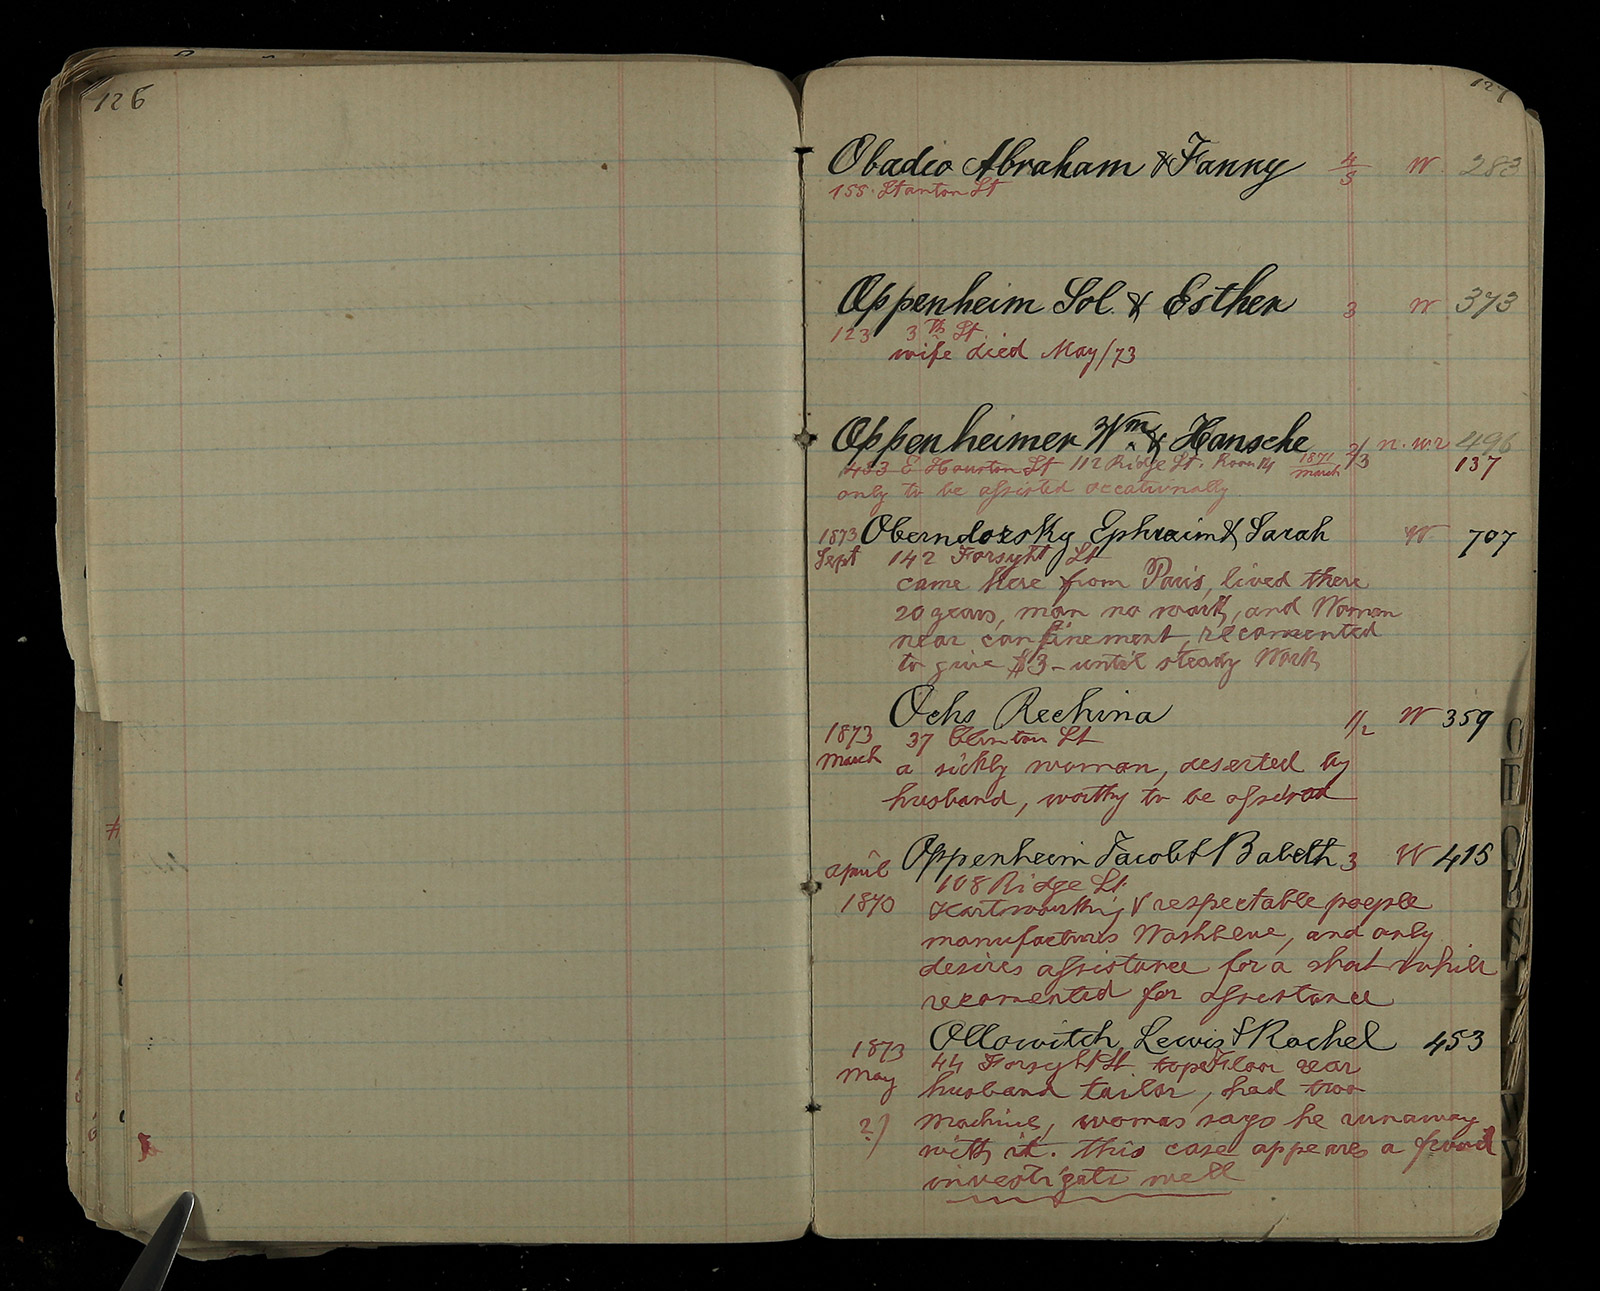 126
127
Obadio Abraham & Fanny 4/5 W 283
155 Stanton St
Oppenheim Sol. & Esther 3 W 373
123 3th St.
wife died May/73
Oppenheimer Wm & Hansche 2/3 n. w r 496
453 E Houston St 112 Ridge St. Room 14 1871 March 137
only to be assisted occationally
1873 Oberndorsky Ephraim & Sarah W 707
Sept 142 Forsyht St
came here from Paris, lived there
20 years, man no work, and Woman
near confinement, recomented
to give $3 - until steady Work
Ochs Rechina 1/2 W 359
1873 37 Clinton St
March a sickly woman, deserted by
husband, worthy to be assisted
Oppenheim Jacob & Babeth 3 W 415
april 108 Ridge St.
1870 & respectable people
manufactures, and only
desires assistance for a short while
recomented for assistance
Ollowitch Lewis & Rachel 453
1873 44 Forsyht St. tope Floor rear
May husband tailor, had two
?) machine, woman says he runaway
with it. this case appears a fraud
investigate well